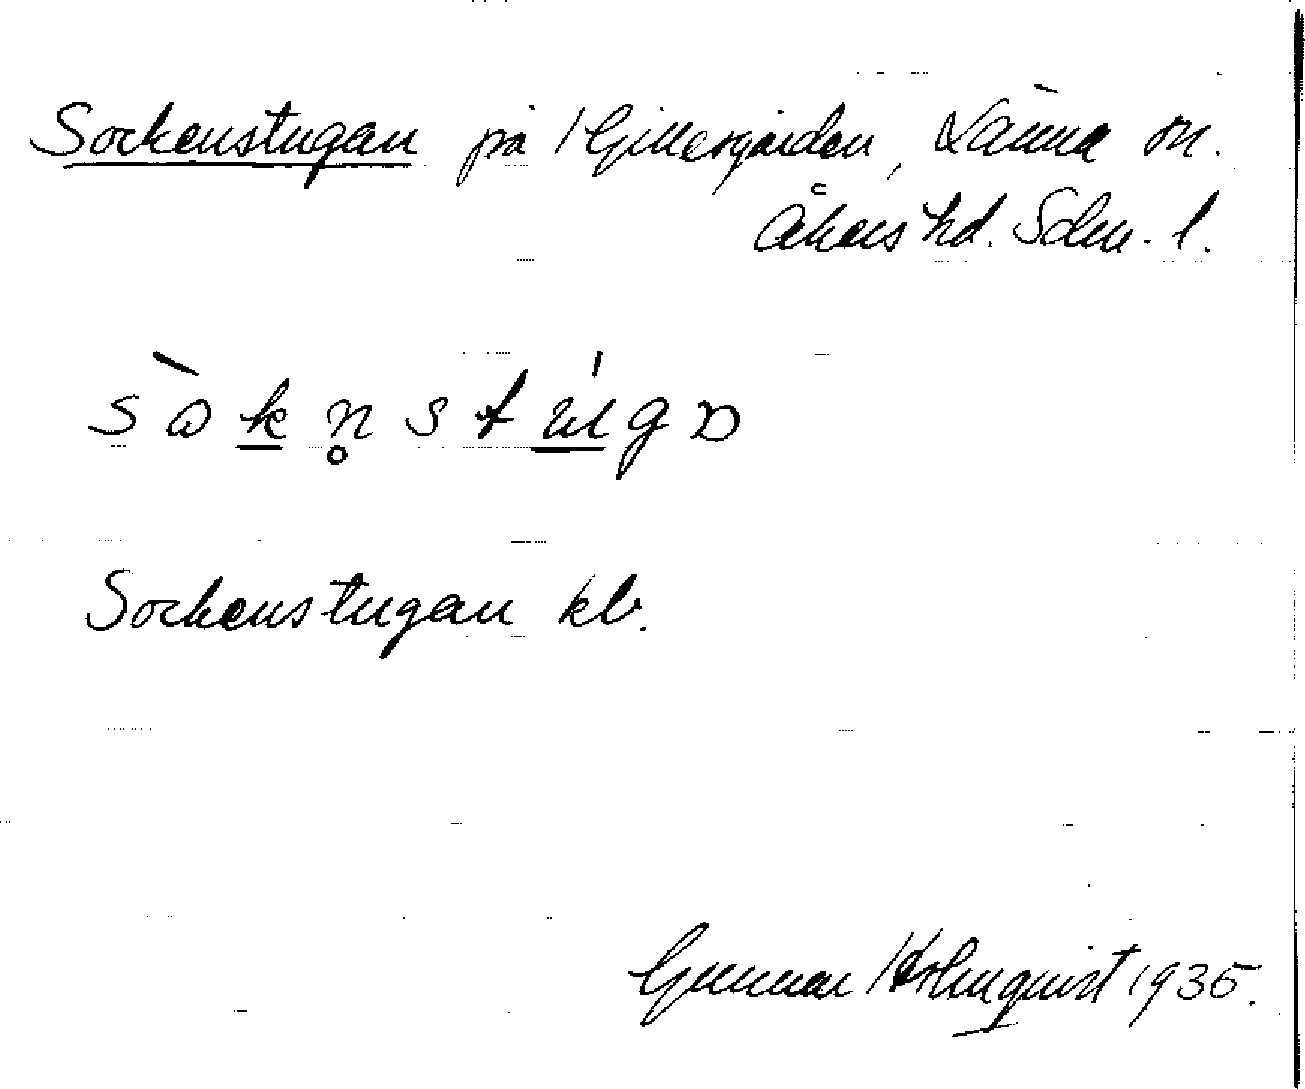 Sockenstugan på Gillersgården, Länna sn.
Åkers hd. Sdm. l.
sòkn̥stúgɒ
Sockenstugan kb.
Gunnar Holmquist 1935.